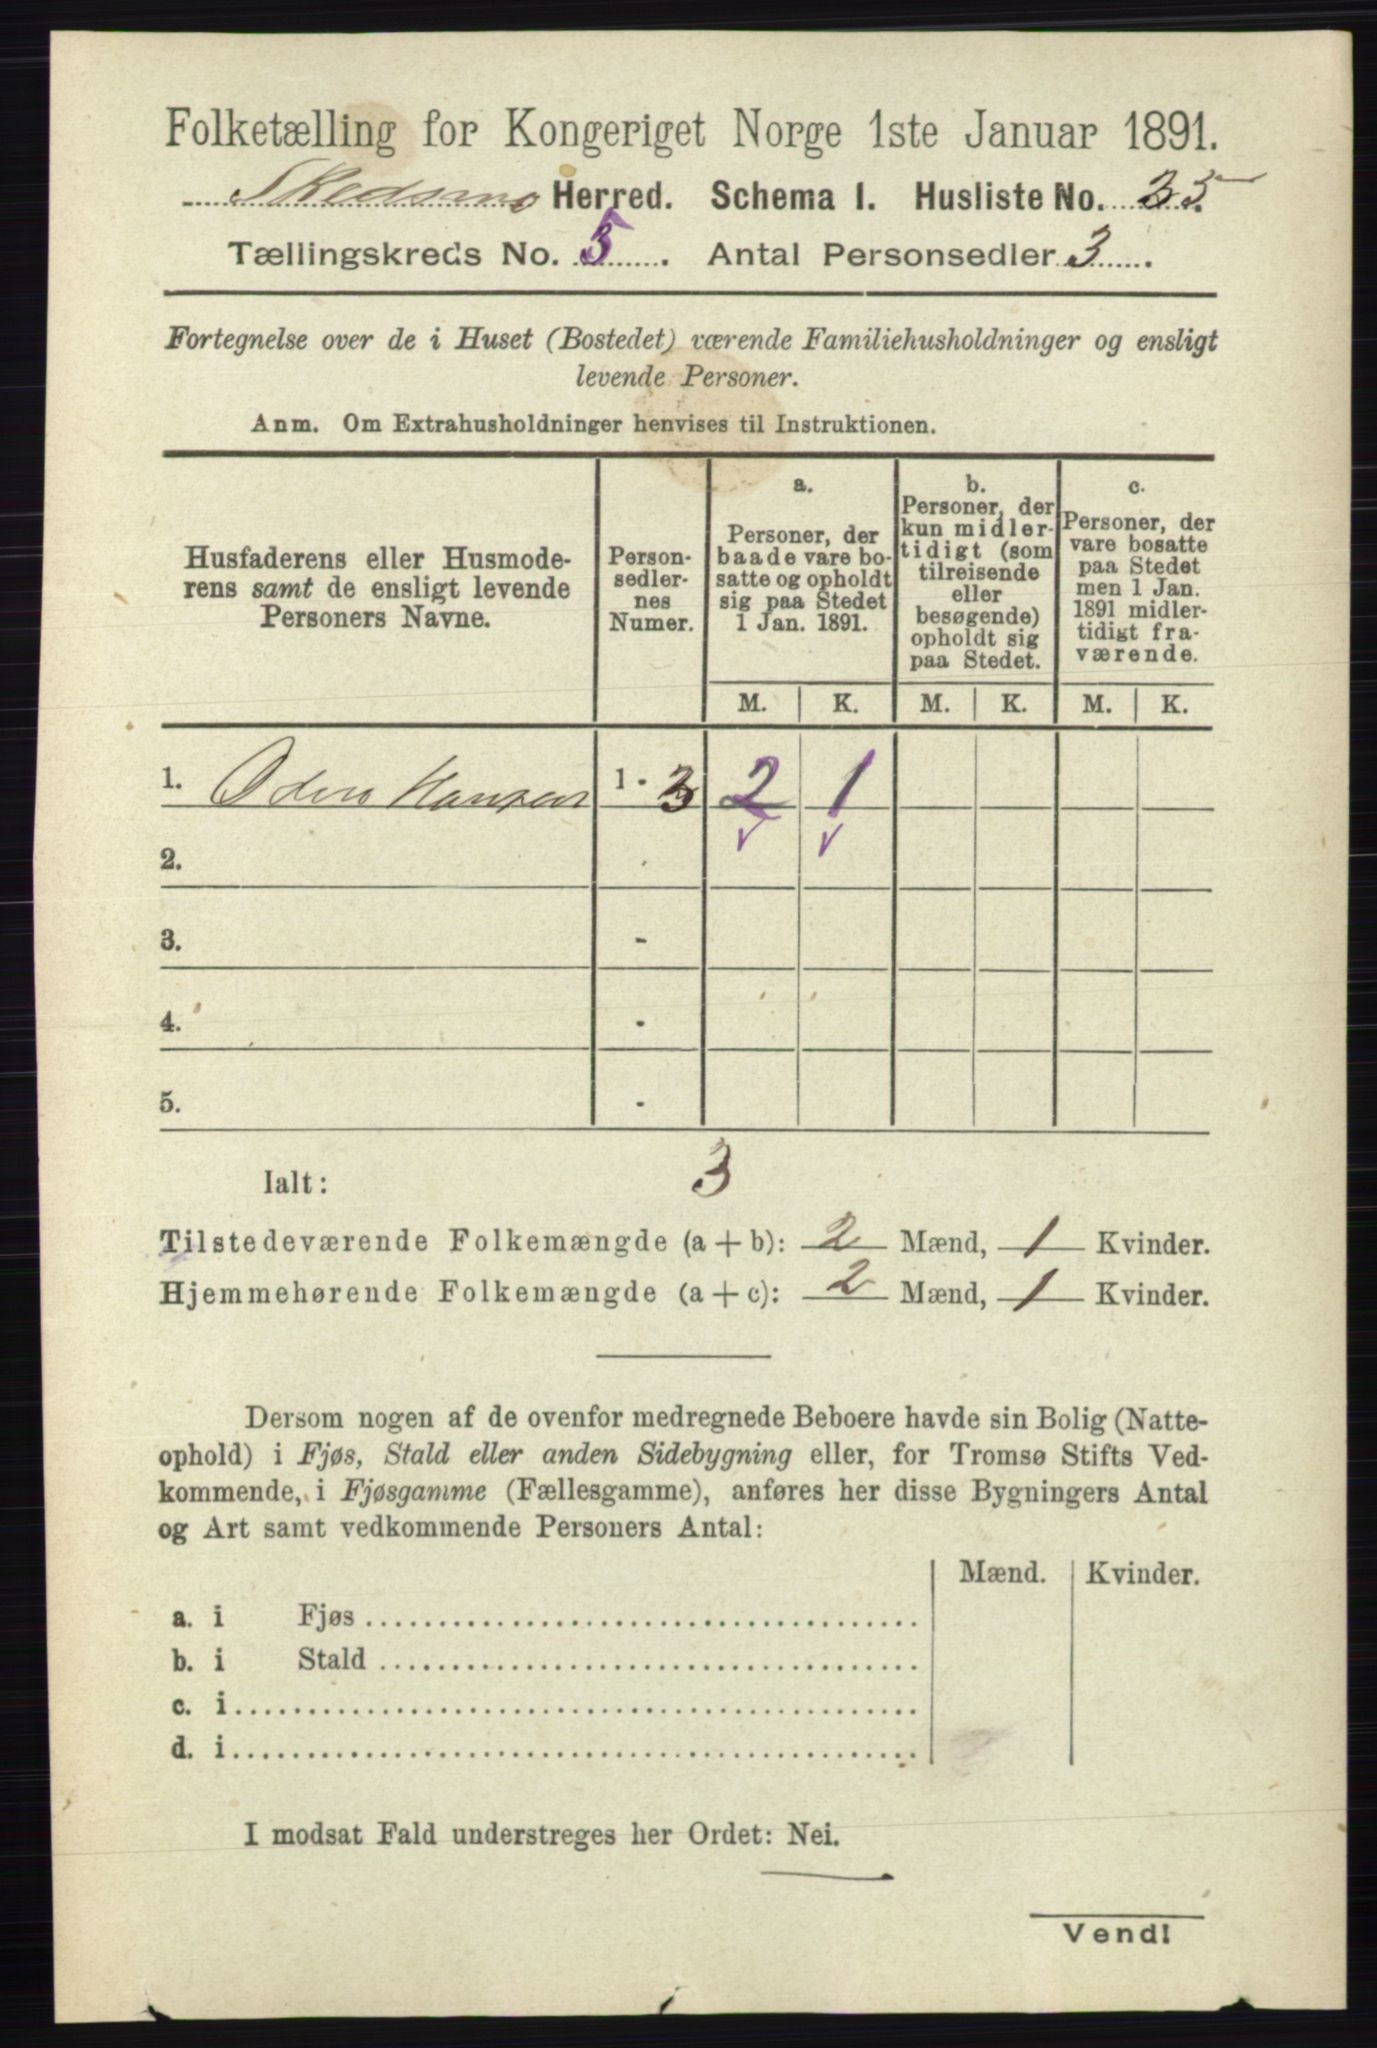 Folketælling for Kongeriget Norge 1ste Januar 1891.
Skedsmo Herred. Schema I. Husliste No. 35.
Tællingskreds No. 5. Antal Personsedler 3.
Fortegnelse over de i Huset (Bostedet) værende Familiehusholdninger og ensligt
levende Personer.
Anm. Om Extrahusholdninger henvises til Instruktionen.
Husfaderens eller Husmode-
rens samt de ensligt levende
Personers Navne.
Person-
sedler-
nes
Numer.
a.
Personer, der
baade vare bo-
satte og opholdt
sig paa Stedet
1 Jan. 1891.
b.
Personer, der
kun midler-
tidigt (som
tilreisende
eller
besøgende)
opholdt sig
paa Stedet.
c.
Personer, der
vare bosatte
paa Stedet
men 1 Jan.
1891 midler-
tidigt fra-
værende.
M. K. M. K. M. K.
1. Oden Hansen 1 - 3 2 1
2.
3. -
4. -
5. -
Ialt: 3
Tilstedeværende Folkemængde (a + b): 2 Mænd, 1 Kvinder.
Hjemmehørende Folkemængde (a + c): 2 Mænd, 1 Kvinder.
Dersom nogen af de ovenfor medregnede Beboere havde sin Bolig (Natte-
ophold) i Fjøs, Stald eller anden Sidebygning eller, for Tromsø Stifts Ved-
kommende, i Fjøsgamme (Fællesgamme), anføres her disse Bygningers Antal
og Art samt vedkommende Personers Antal:
Mænd. Kvinder.
a. i Fjøs
b. i Stald
c. i
d. i
I modsat Fald understreges her Ordet: Nei.
Vend!